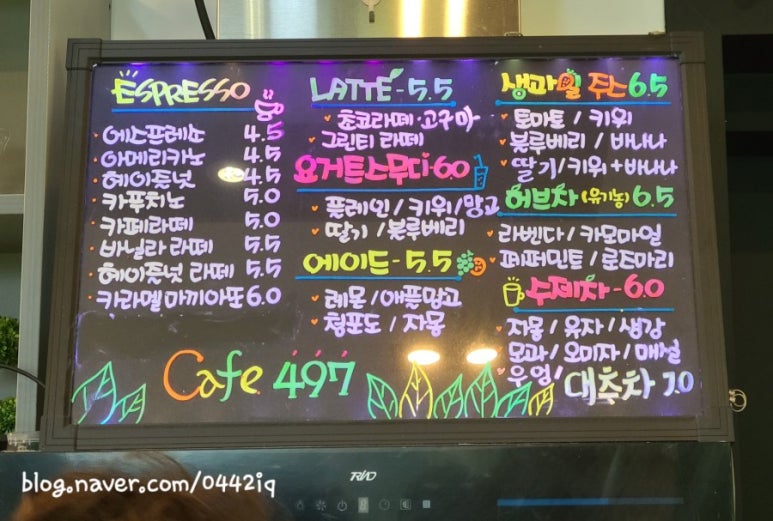 ESPRESSO
에스프레소 4.5
아메리카노 4.5
헤이즐넛 4.5
카푸치노 5.0
카페라떼 5.0
바닐라 라떼 5.5
헤이즐넛 라떼 5.5
카라멜 마끼아또 6.0
LATTE - 5.5
초코라떼·고구마
그린티 라떼
요거트스무디 6.0
플레인 / 키위 / 망고
딸기 / 블루베리
에이드 - 5.5
레몬 / 애플망고
청포도 / 자몽
생과일 주스 6.5
토마토 / 키위
블루베리 / 바나나
딸기 / 키위 + 바나나
허브차 (유기농) 6.5
라벤다 / 카모마일
페퍼민트 / 로즈마리
수제차 - 6.0
자몽 / 유자 / 생강
모과 / 오미자 / 매실
우엉 / 대추차 7.0
Cafe 497
TRIO
blog.naver.com/0442iq